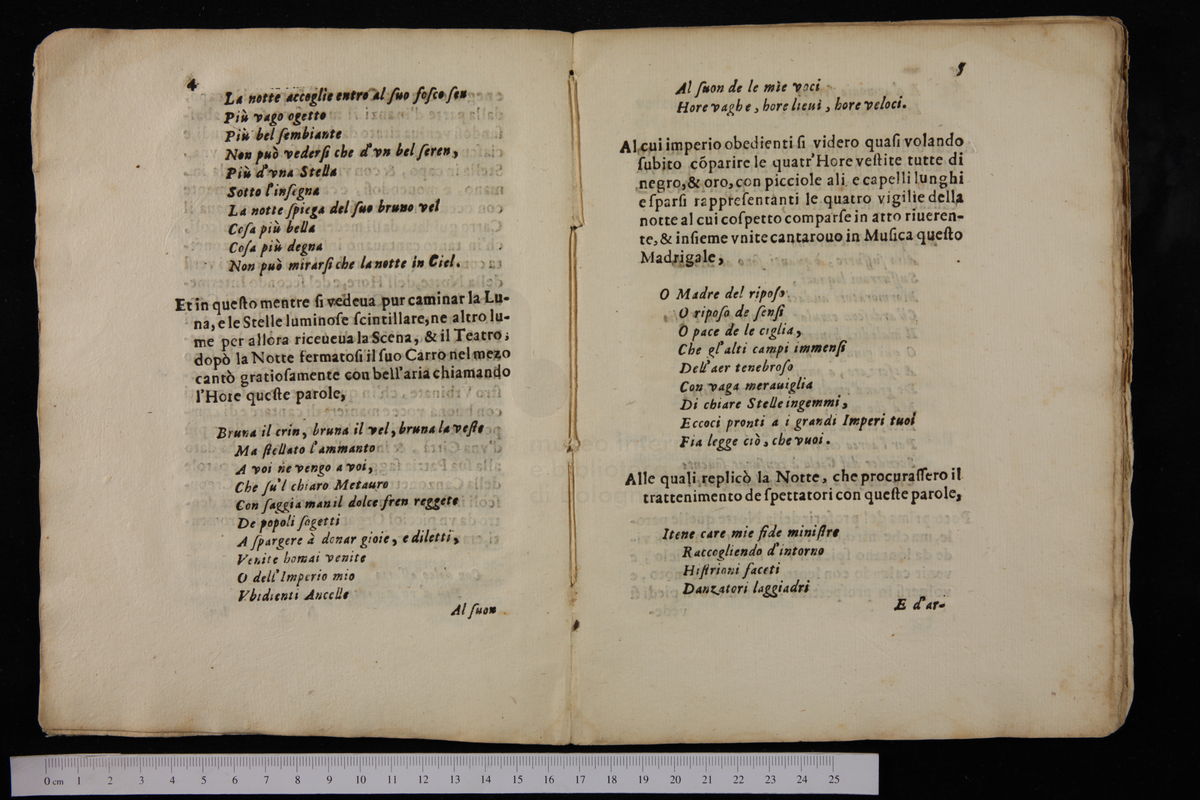 4
La notte accoglie entro al ſuo foſco ſen
Più vago ogetto
Più bel ſembiante
Non può vederſi che d'vn bel ſeren,
Più d'vna Stella
Sotto l'inſegna
La notte ſpiega del ſuo bruno vel
Coſa più bella
Coſa più degna
Non può mirarſi che la notte in Ciel.
Et in queſto mentre ſi vedeua pur caminar la Lu-
na, e le Stelle luminoſe ſcintillare, ne altro lu-
me per allora riceueua la Scena, & il Teatro;
dopò la Notte fermatoſi il ſuo Carro nel mezo
cantò gratioſamente con bell'aria chiamando
l'Hore queſte parole,
Bruna il crin, bruna il vel, bruna la veſte
Ma ſtellato l'ammanto
A voi ne vengo a voi,
Che ſu'l chiaro Metauro
Con ſaggia man il dolce fren reggete
De popoli ſogetti
A ſpargere à donar gioie, e diletti,
Venite homai venite
O dell'Imperio mio
Vbidienti Ancelle
Al ſuon
5
Al ſuon de le mie voci
Hore vaghe, hore lieui, hore veloci.
Al cui imperio obedienti ſi videro quaſi volando
ſubito cõparire le quatr'Hore veſtite tutte di
negro, & oro, con picciole ali e capelli lunghi
e ſparſi rappreſentanti le quatro vigilie della
notte al cui coſpetto comparſe in atto riueren-
te, & inſieme vnite cantarouo in Muſica queſto
Madrigale,
O Madre del ripoſo
O ripoſo de ſenſi
O pace de le ciglia,
Che gl'alti campi immenſi
Dell'aer tenebroſo
Con vaga merauiglia
Di chiare Stelle ingemmi,
Eccoci pronti a i grandi Imperi tuoi
Fia legge ciò, che vuoi.
Alle quali replicò la Notte, che procuraſſero il
trattenimento de ſpettatori con queſte parole,
Itene care mie fide miniſtre
Raccogliendo d'intorno
Hiſtrioni faceti
Danzatori laggiadri
E d'ar-
0 cm 1 2 3 4 5 6 7 8 9 10 11 12 13 14 15 16 17 18 19 20 21 22 23 24 25